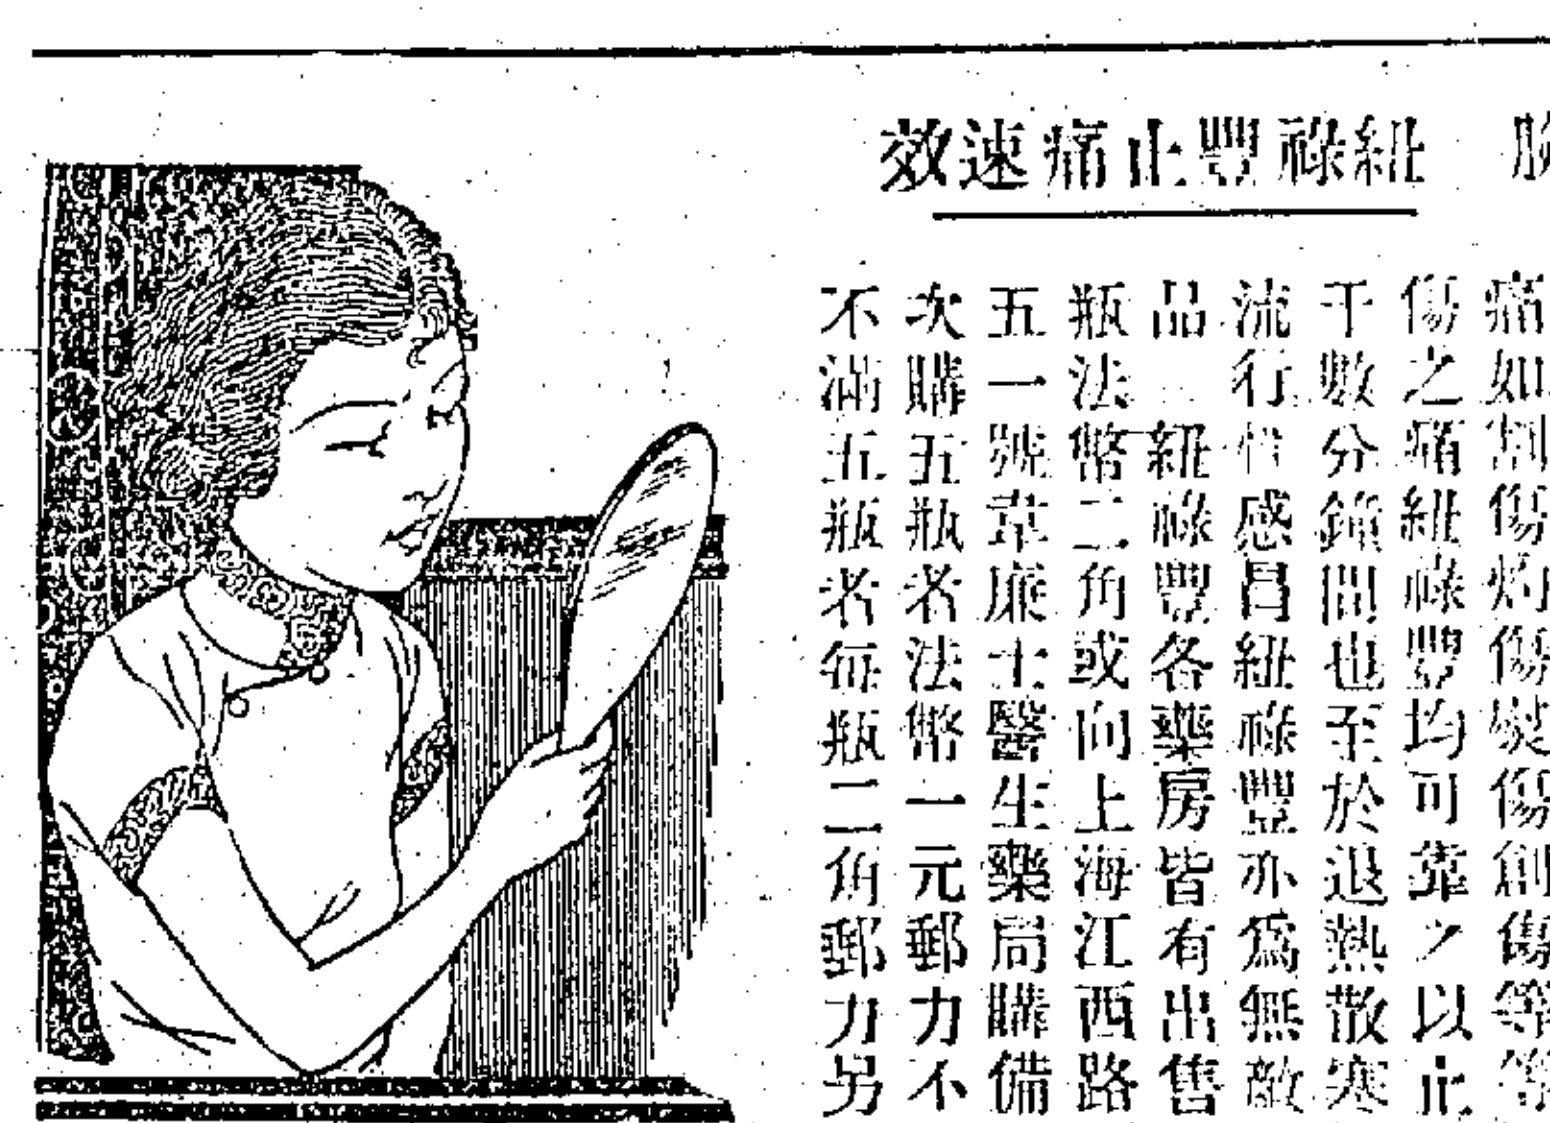 紐祿豐止痛速效
痛如割傷灼傷熨傷創傷等等
傷之痛紐祿豐均可靠之以止
千數分鐘間也至於退熱散寒
流行性感冒紐祿豐亦為無敵
品 紐祿豐各藥房皆有出售
瓶法幣二角或向上海江西路
五一號韋廉士醫生藥局購備
次購五瓶者法幣一元郵力不
不滿五瓶者每瓶二角郵力另